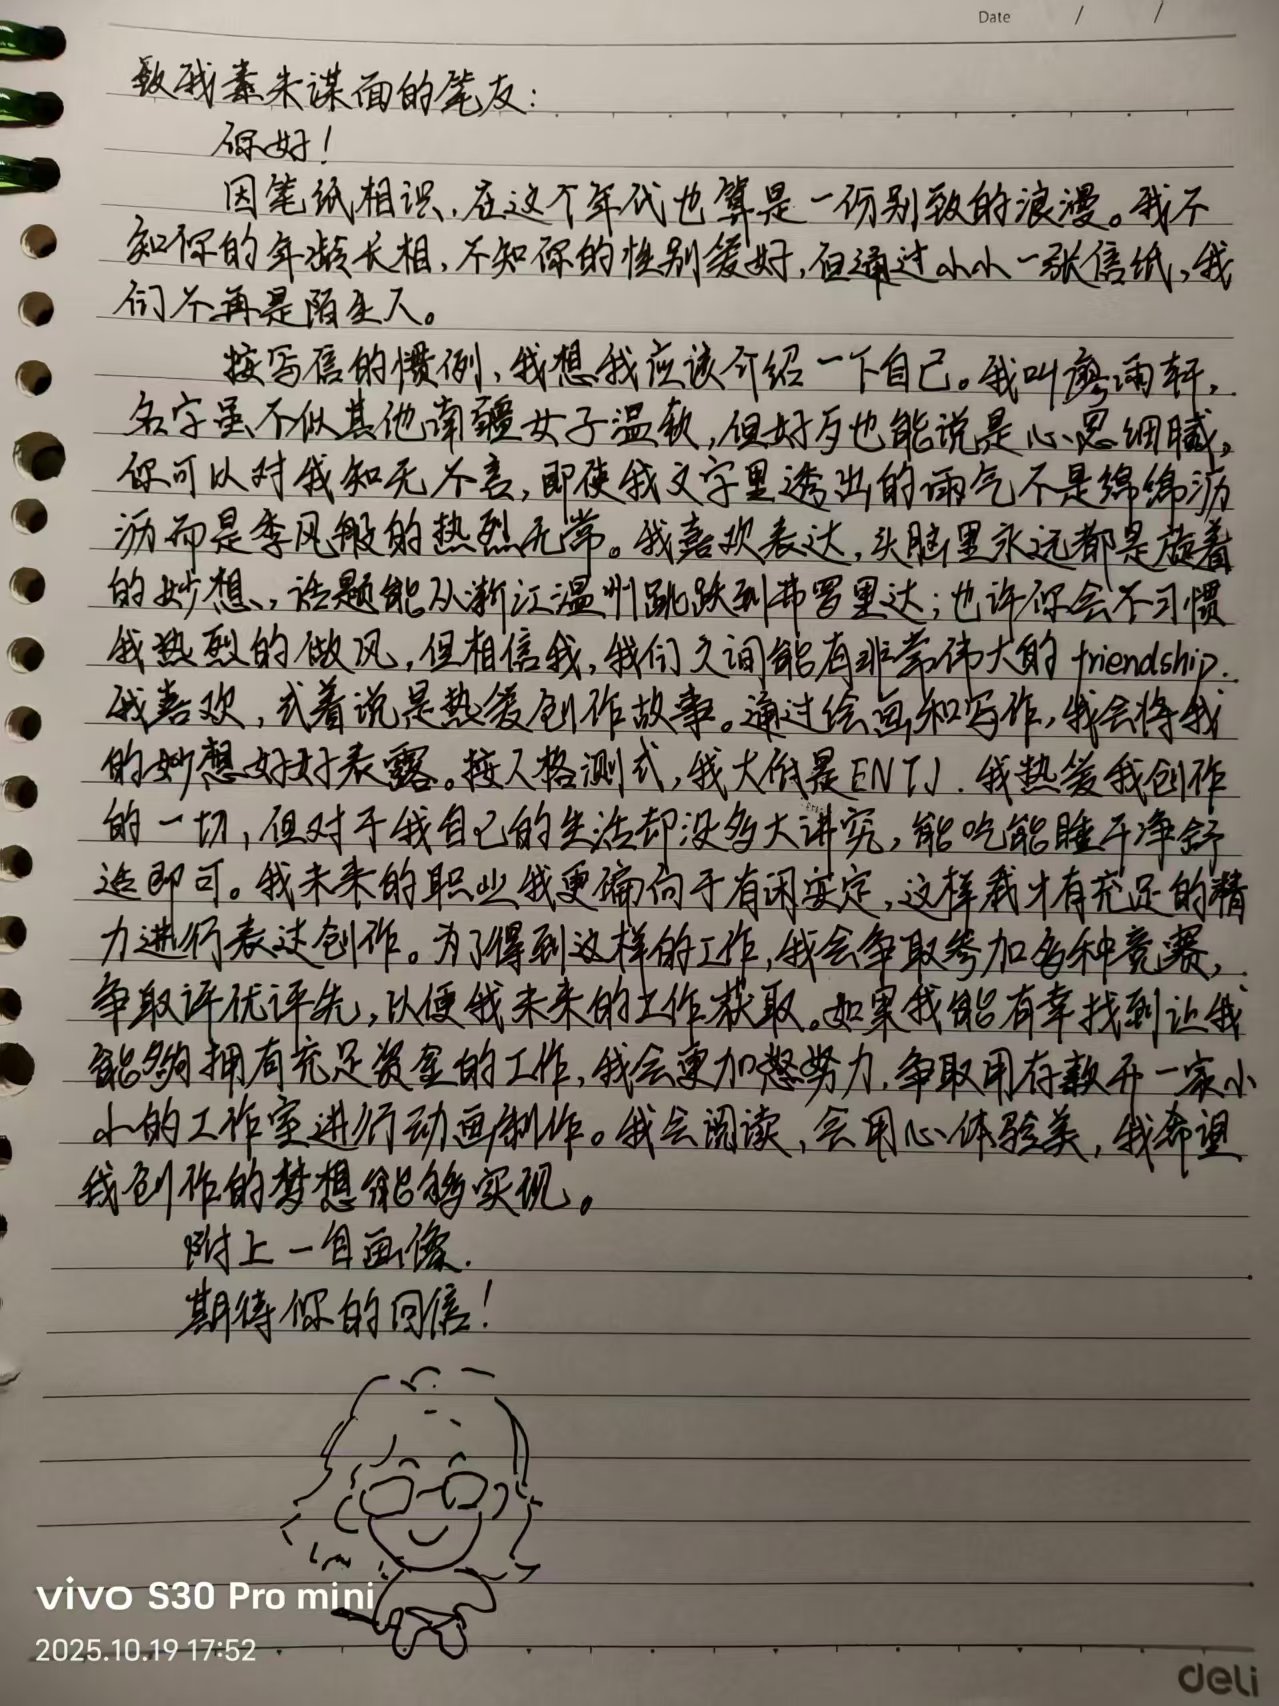 Date / /
致我素未谋面的笔友：
你好！
因笔纸相识，在这个年代也算是一份别致的浪漫。我不
知你的年龄长相，不知你的性别爱好，但通过小小一张信纸，我
们不再是陌生人。
按写信的惯例，我想我应该介绍一下自己。我叫廖雨轩，
名字虽不似其他南疆女子温软，但好歹也能说是心思细腻，
你可以对我知无不言，即使我文字里透出的雨气不是绵绵沥
沥而是季风般的热烈无常。我喜欢表达，头脑里永远都是旋着
的妙想，话题能从浙江温州跳跃到弗罗里达；也许你会不习惯
我热烈的做风，但相信我，我们之间能有非常伟大的friendship.
我喜欢，或着说是热爱创作故事。通过绘画和写作，我会将我
的妙想好好表露。按人格测式，我大低是ENTJ．我热爱我创作
的一切，但对于我自己的生活却没多大讲究，能吃能睡干净舒
适即可。我未来的职业我更偏向于有闲安定，这样我才有充足的精
力进行表达创作。为了得到这样的工作，我会争取参加各种竞赛，
争取评优评先，以便我未来的工作获取。如果我能有幸找到让我
能够拥有充足资金的工作，我会更加努力，争取用存款开一家小
小的工作室进行动画制作。我会阅读，会用心体验美，我希望
我创作的梦想能够实现。
附上一自画像．
期待你的回信！
vivo S30 Pro mini
2025.10.19 17:52
deli